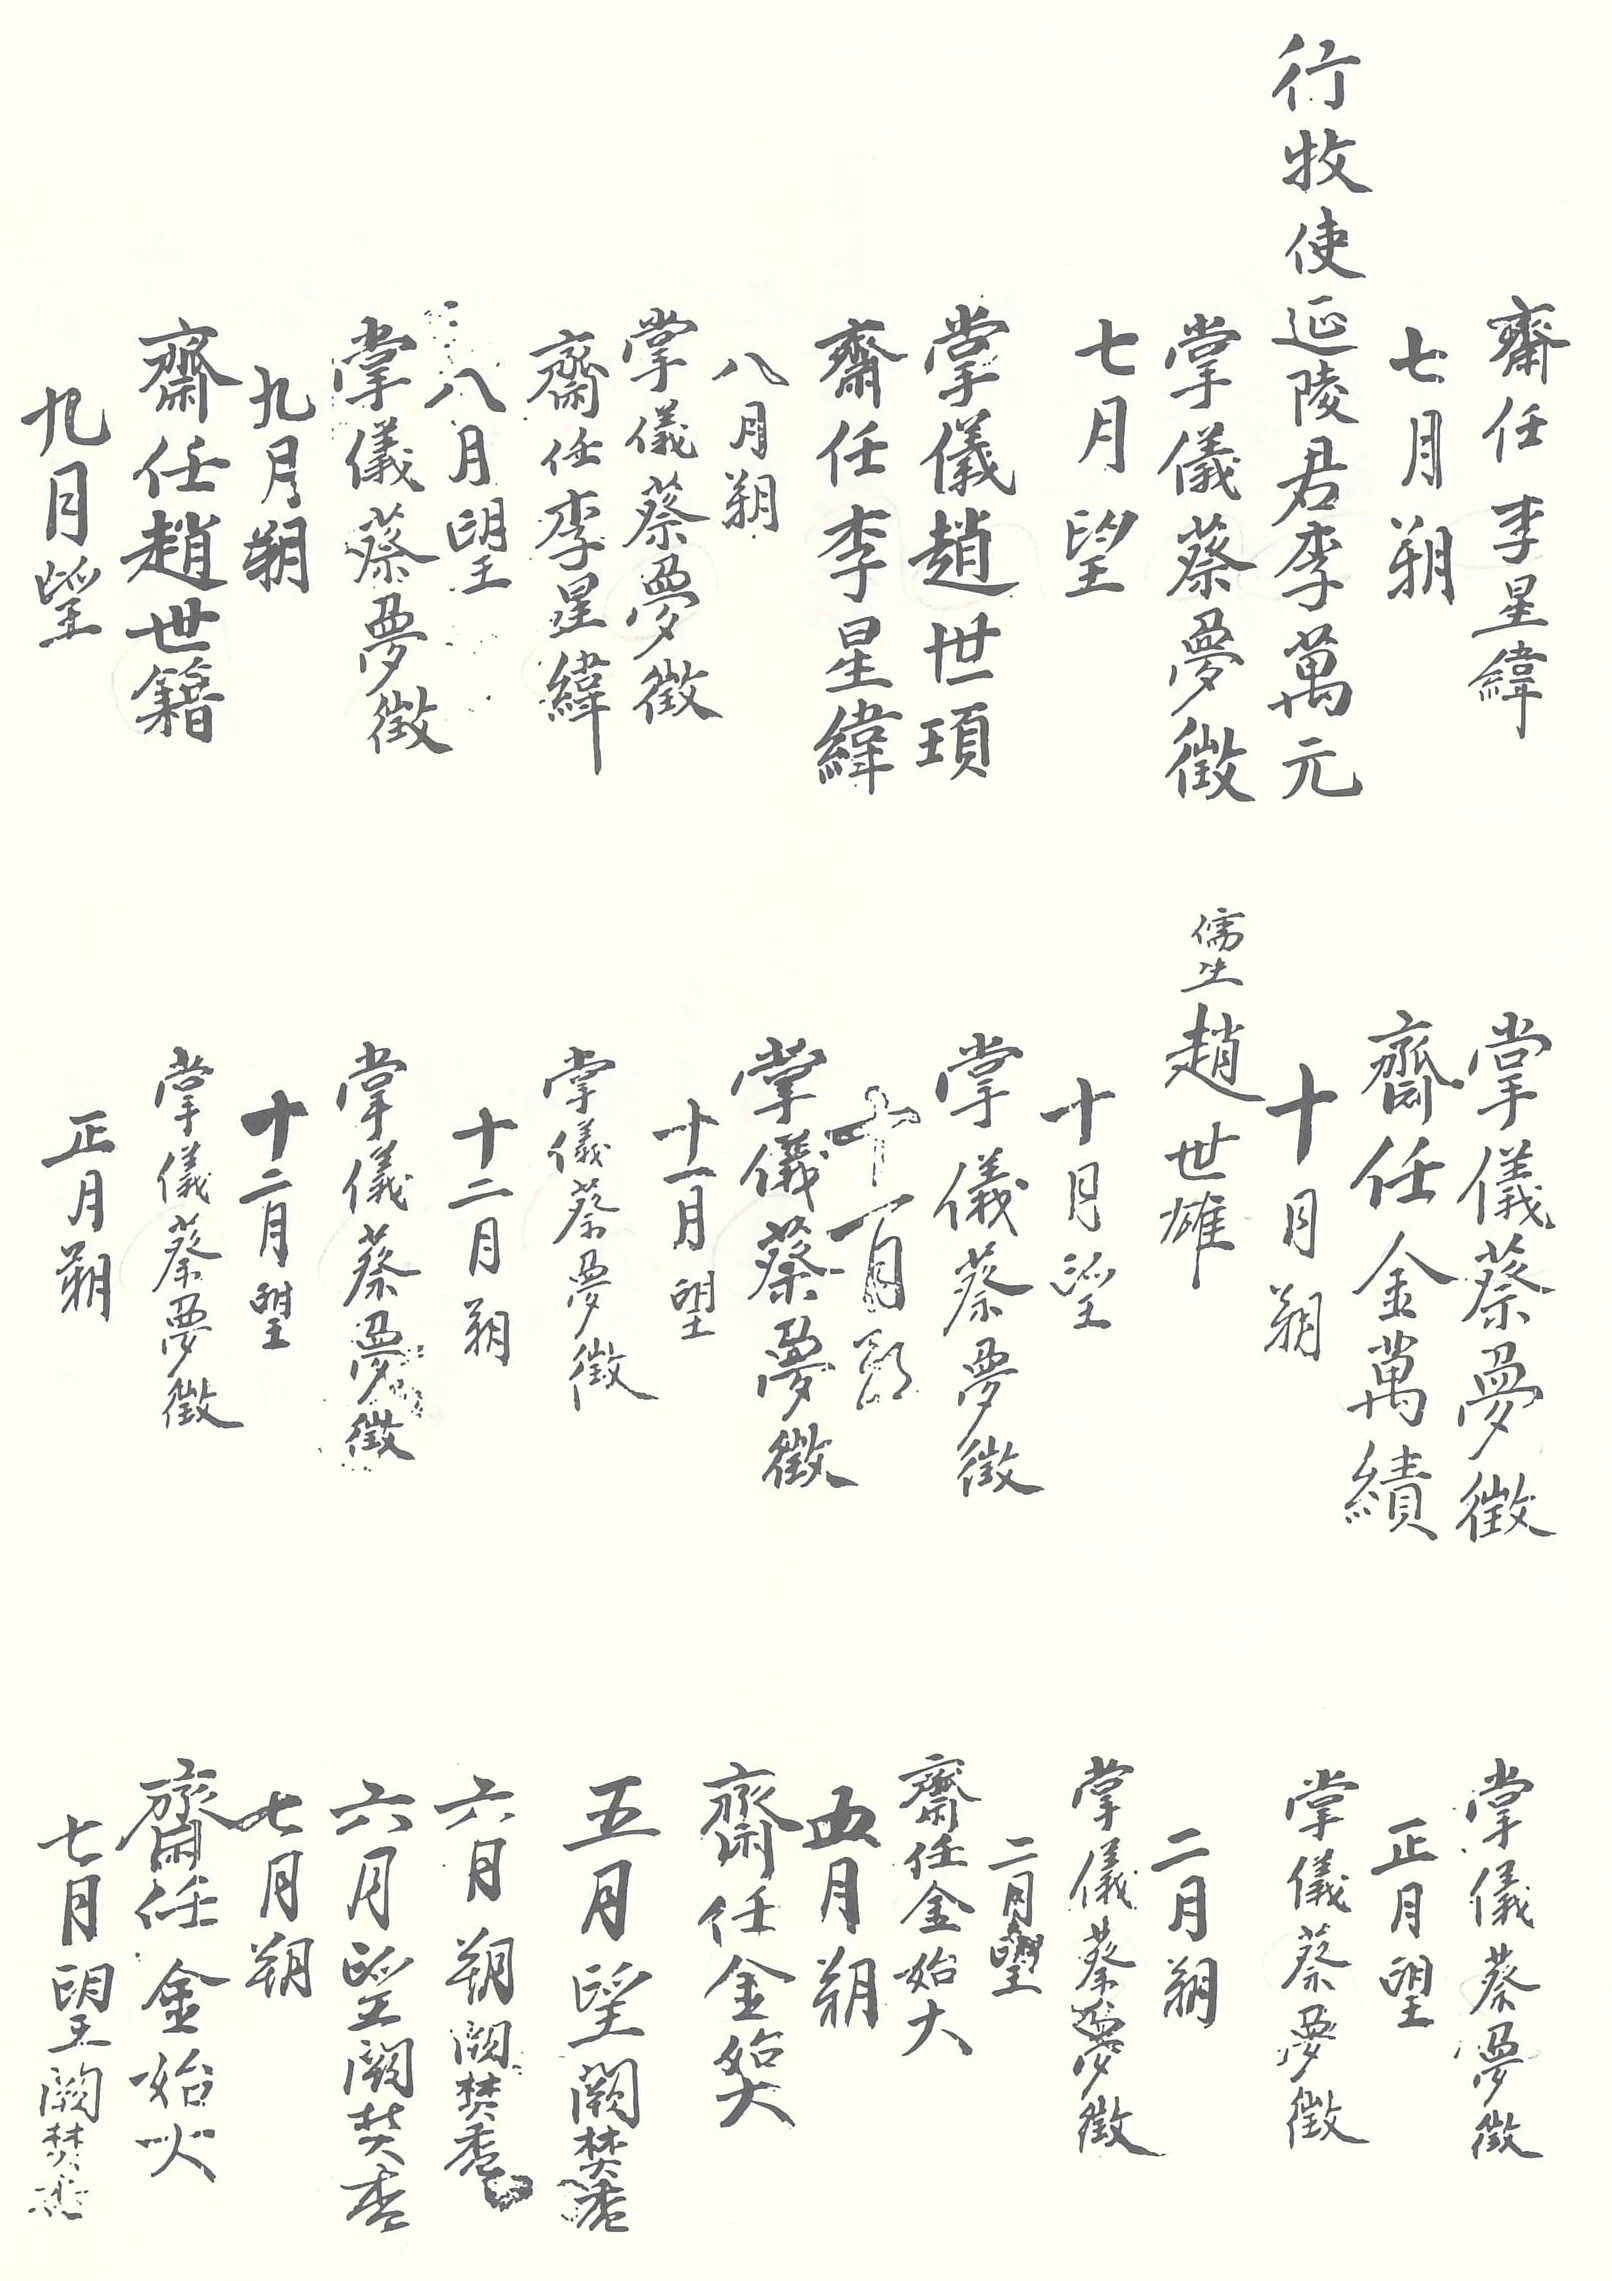 齋任李星緯
七月朔
行牧使延陵君李萬元
掌儀蔡夢徵
七月望
掌儀趙世頊
齋任李星緯
八月朔
掌儀蔡夢徵
齋任李星緯
八月望
掌儀蔡夢徵
九月朔
齋任趙世籍
九月望
掌儀蔡夢徵
齋任金萬績
十月朔
儒生趙世雄
十月望
掌儀蔡夢徵
十一月朔
掌儀蔡夢徵
十一月望
掌儀蔡夢徵
十二月朔
掌儀蔡夢徵
十二月望
掌儀蔡夢徵
正月朔
掌儀蔡夢徵
正月望
掌儀蔡夢徵
二月朔
掌儀蔡夢徵
二月望
齋任金始大
五月朔
齋任金始大
五月望闕焚香
六月朔闕焚香
六月望闕焚香
七月朔
齋任金始火
七月望闕焚香